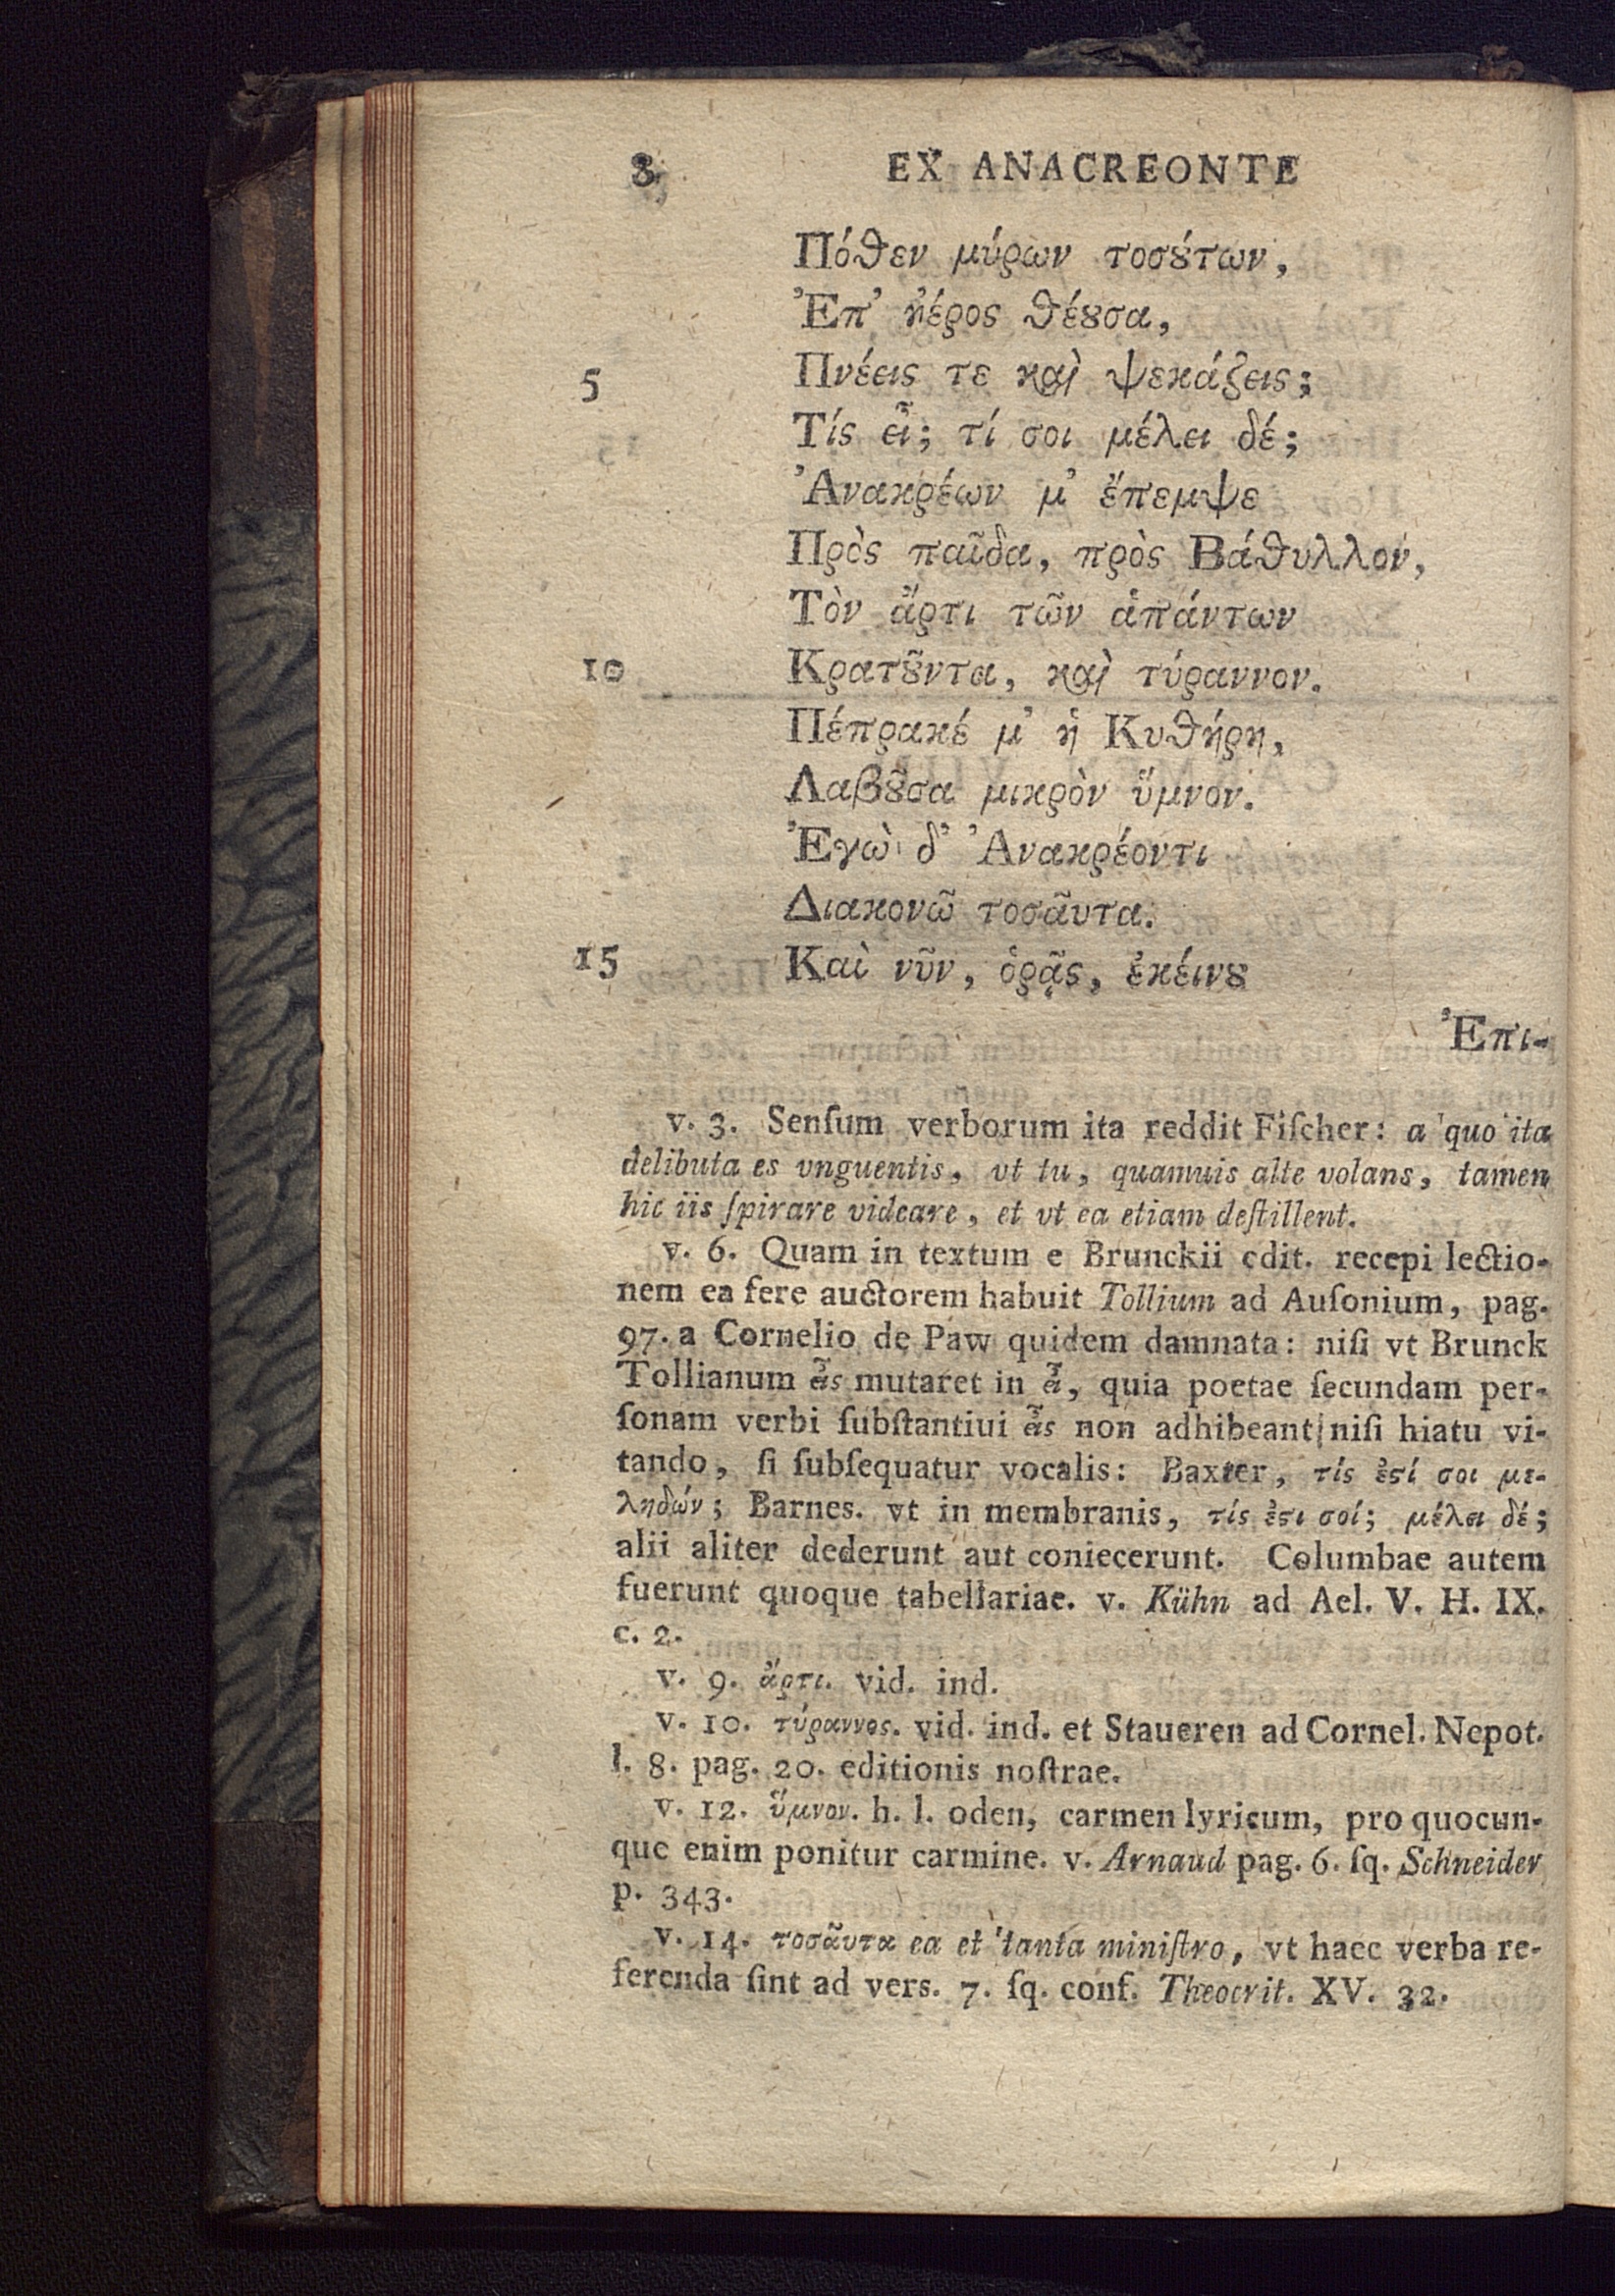 8 EX ANACREONTE
Πόθεν μύρων τοσȣ́των,
Ἐπ' ἠέρος θέȣσα,
5 Πνέεις τε καὶ ψεκάζεις;
Τίς εἶ; τί σοι μέλει δέ;
Ἀνακρέων μ' ἔπεμψε
Πρὸς παῖδα, πρὸς Βάθυλλον,
Τὸν ἄρτι τῶν ἁπάντων
10 Κρατȣ͂ντα, καὶ τύραννον.
Πέπρακέ μ' ἡ Κυθήρη,
Λαβȣ͂σα μικρὸν ὕμνον.
Ἐγὼ δ' Ἀνακρέοντι
Διακονῶ τοσαῦτα.
15 Καὶ νῦν, ὁρᾷς, ἐκείνȣ
Ἐπι-
v. 3. Senſum verborum ita reddit Fiſcher: a quo ita
delibuta es vnguentis, vt tu, quamuis alte volans, tamen
hic iis ſpirare videare, et vt ea etiam deſtillent.
v. 6. Quam in textum e Brunckii edit. recepi lectio-
nem ea fere auctorem habuit Tollium ad Auſonium, pag.
97. a Cornelio de Paw quidem damnata: niſi vt Brunck
Tollianum εἶς mutaret in εἶ, quia poetae ſecundam per-
ſonam verbi ſubſtantiui εἶς non adhibeant niſi hiatu vi-
tando, ſi ſubſequatur vocalis: Baxter, τίς ἐϛί σοι με-
ληδών; Barnes. vt in membranis, τίς ἐϛι σοί; μέλει δέ;
alii aliter dederunt aut coniecerunt. Columbae autem
fuerunt quoque tabellariae. v. Kühn ad Ael. V. H. IX.
c. 2.
v. 9. ἄρτι. vid. ind.
v. 10. τύραννος. vid. ind. et Staueren ad Cornel. Nepot.
l. 8. pag. 20. editionis noſtrae.
v. 12. ὕμνον. h. l. oden, carmen lyricum, pro quocun-
que enim ponitur carmine. v. Arnaud pag. 6. ſq. Schneider
p. 343.
v. 14. τοσαῦτα ea et tanta miniſtro, vt haec verba re-
ferenda ſint ad vers. 7. ſq. conf. Theocrit. XV. 32.